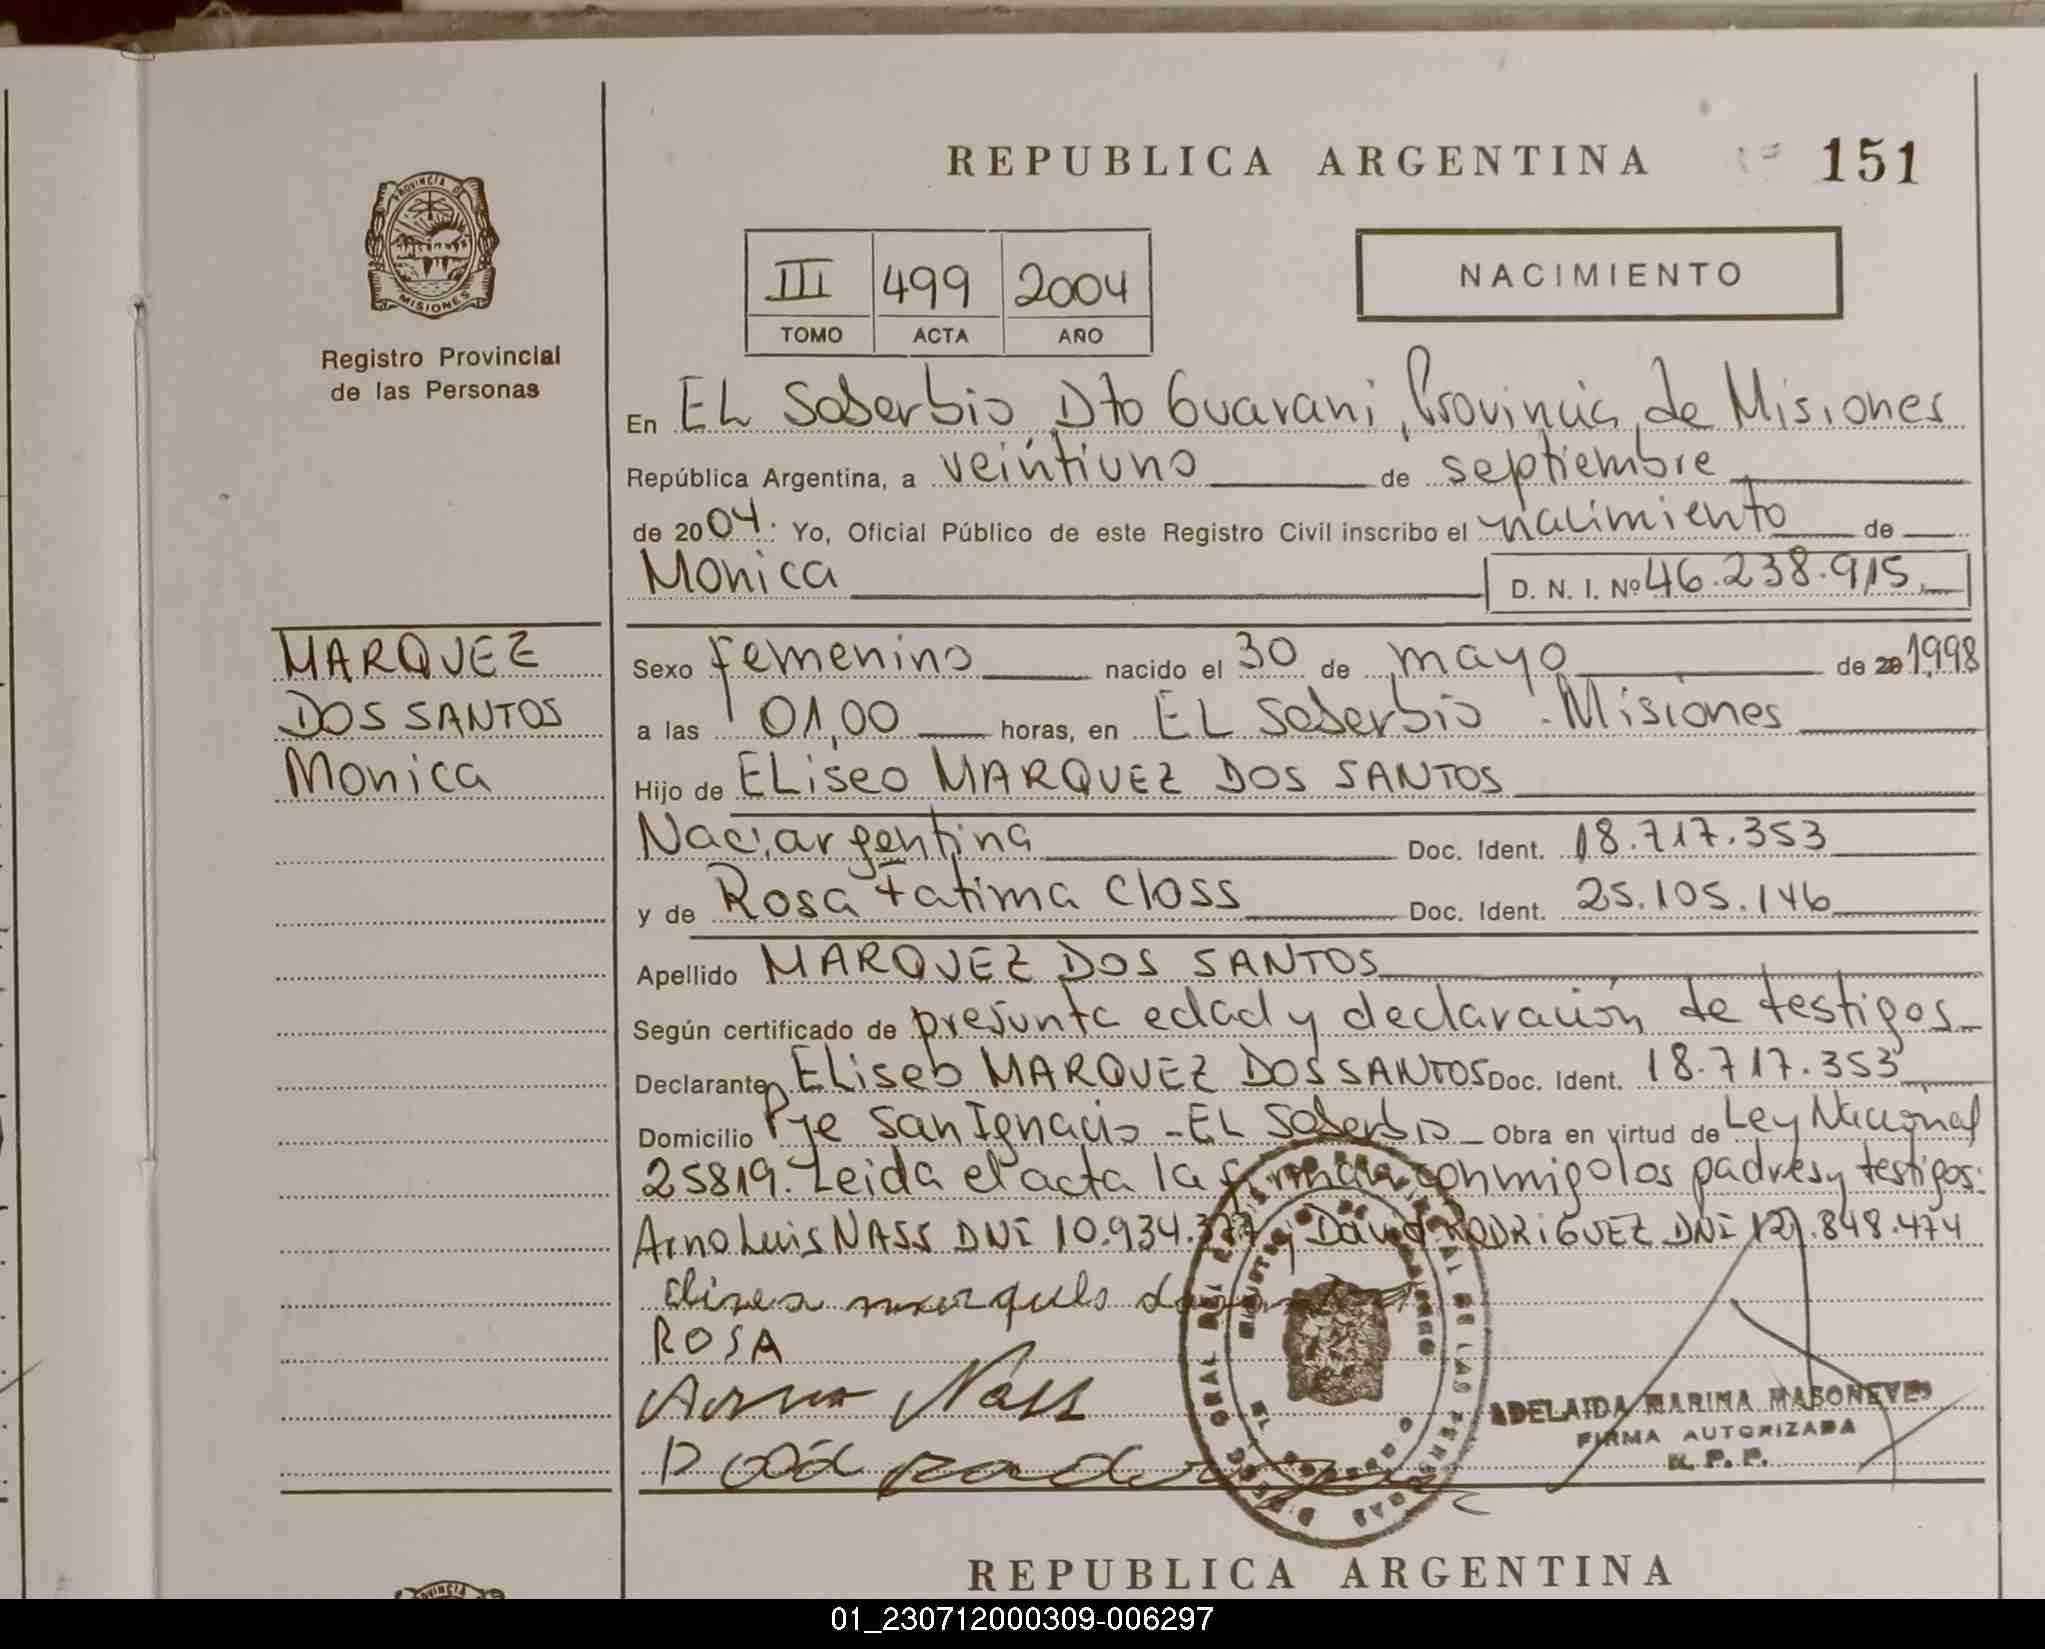 REPUBLICA ARGENTINA 151
PROVINCIA DE
MISIONES
Registro Provincial
de las Personas
III 499 2004
TOMO ACTA AÑO
NACIMIENTO
En EL Soberbio Dto Guarani, Provincia de Misiones
República Argentina, a veintiuno de septiembre
de 2004. Yo, Oficial Público de este Registro Civil inscribo el nacimiento de
Monica D. N. I. Nº 46.238.915
MARQUEZ
DOS SANTOS
Monica
Sexo femenino nacido el 30 de mayo de 20 1998
a las 01,00 horas, en EL Soberbio - Misiones
Hijo de ELiseo MARQUEZ DOS SANTOS
Nac. argentina Doc. Ident. 18.717.353
y de Rosa Fatima Closs Doc. Ident. 25.105.146
Apellido MARQUEZ DOS SANTOS
Según certificado de presunta edad y declaración de testigos
Declarante ELiseo MARQUEZ DOS SANTOS Doc. Ident. 18.717.353
Domicilio Pje San Ignacio - EL Soberbio Obra en virtud de Ley Nacional
25819. Leida el acta la firman conmigo los padres y testigos:
Arno Luis NASS DNI 10.934.377 y David RODRIGUEZ DNI 12.848.474
ROSA
Arno Nass
ADELAIDA MARINA MASONEVES
FIRMA AUTORIZADA
R. P. P.
REPUBLICA ARGENTINA
01_230712000309-006297